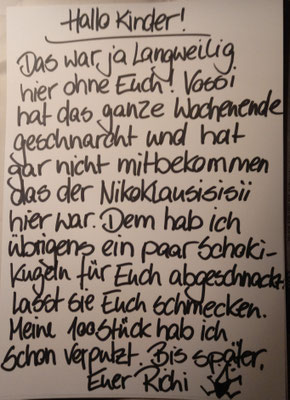 Hallo Kinder!
Das war ja Langweilig
hier ohne Euch! Vossi
hat das ganze Wochenende
geschnarcht und hat
gar nicht mitbekommen
das der Nikoklausisisii
hier war. Dem hab ich
übrigens ein paar Schoki-
Kugeln für Euch abgeschnackt.
Lasst sie Euch schmecken.
Meine 100 Stück hab ich
schon verputzt. Bis später,
Euer Richi